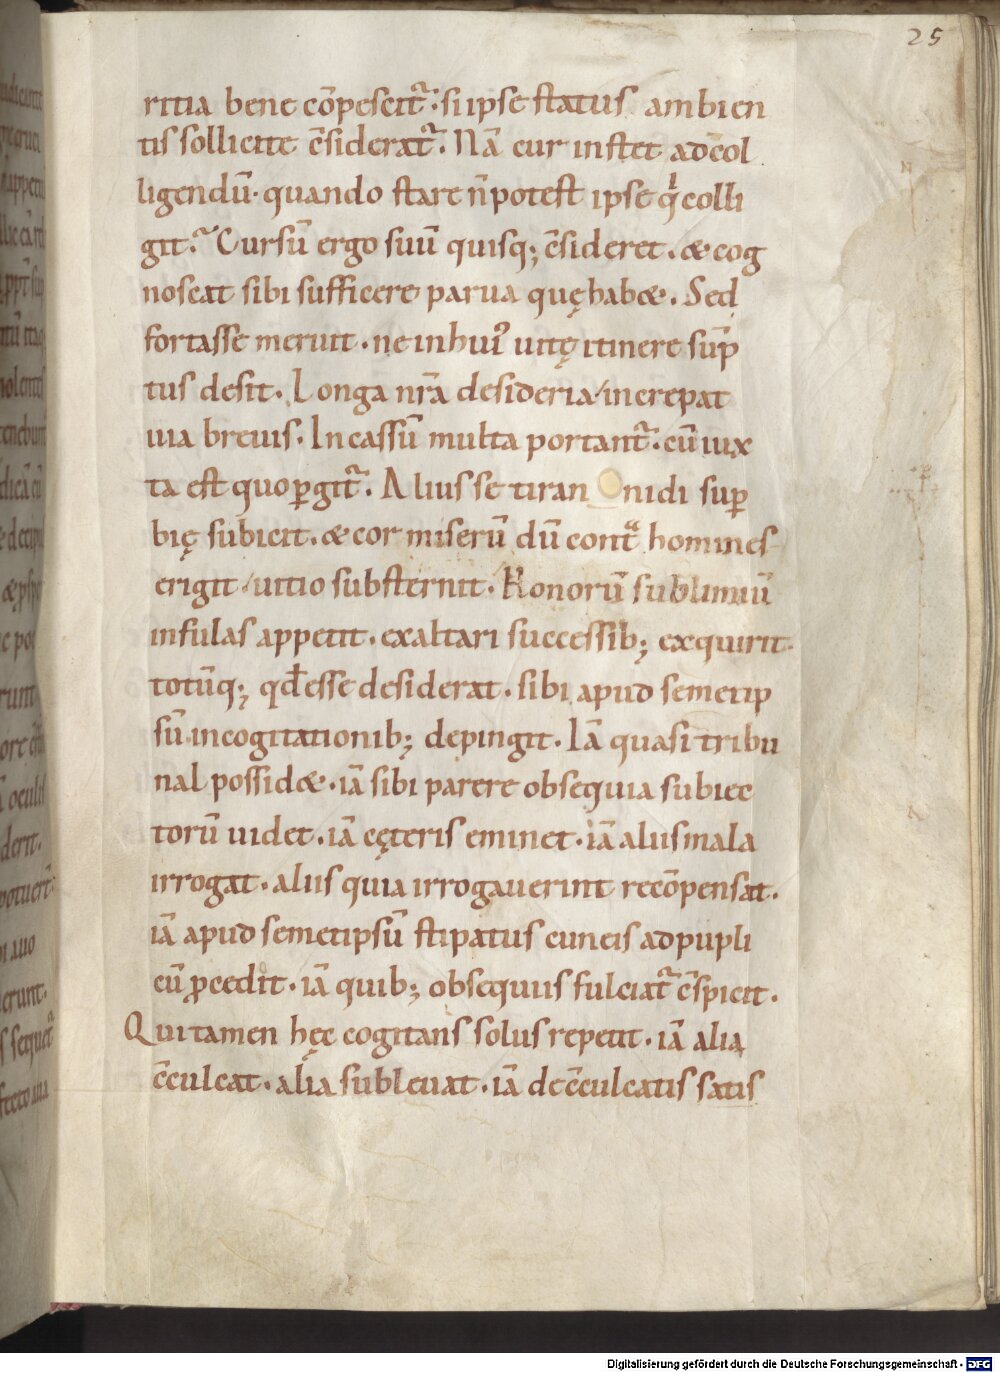 25
ritia bene cōpescit᷑. si ipse status ambien
tis sollicite c̄siderat᷑. Nā cur instet ad c̄ol
ligendū. quando stare n̄ potest ipse qͥ colli
git. Cursū ergo suū quisq; c̄sideret. & cog
noscat sibi sufficere parua quę hab&. Sed
fortasse metuit. ne in hui᾽ uitę itinere sūp
tus desit. Longa nr̄a desideria increpat
uia breuis. Incassū multa portant᷑. cū iux
ta est quo ꝑgit᷑. Alius se tiran nidi suꝑ
bię subicit. & cor miserū dū contᷓ homines
erigit uitio substernit. Honorū sublimiū
infulas appetit. exaltari successib; exquirit.
totūq; qđ esse desiderat. sibi apud semetip
sū in cogitationib; depingit. Iā quasi tribu
nal possid&. iā sibi parere obsequia subiec
torū uidet. iā cęteris eminet. iā aliis mala
irrogat. aliis quia irrogauerint recōpensat.
iā apud semetipsū stipatus cuneis ad pupli
cū ꝓcedit. iā quib; obsequiis fulciat᷑ c̄spicit.
Qui tamen hęc cogitans solus repetit. iā alia
c̄culcat. alia subleuat. iā de c̄culcatis satis
Digitalisierung gefördert durch die Deutsche Forschungsgemeinschaft - DFG